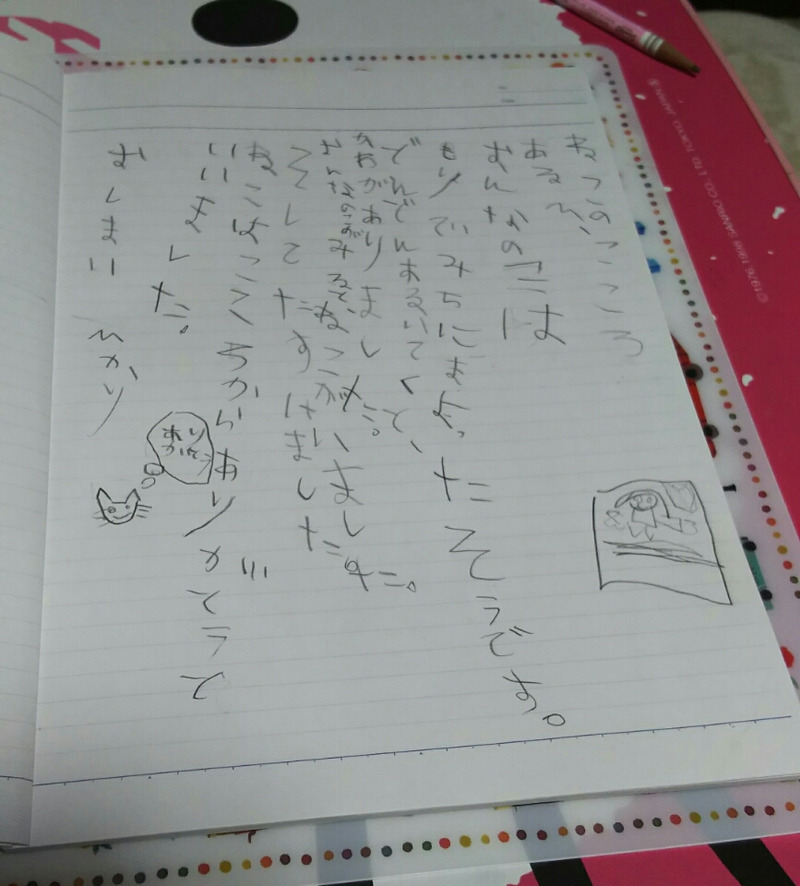 ねこのこころ
あるひ、
おんなのこは
もりでみちにまよったそうです。
でんでんあるいてくと、
かわがありました。
おんなのこがみると、ねこがいました。
そしてたすけました。
ねこはこころからありがとうと
いいました。
おしまい ひかり
ありがとう
©1976, 1998 SANRIO CO., LTD. TOKYO, JAPAN